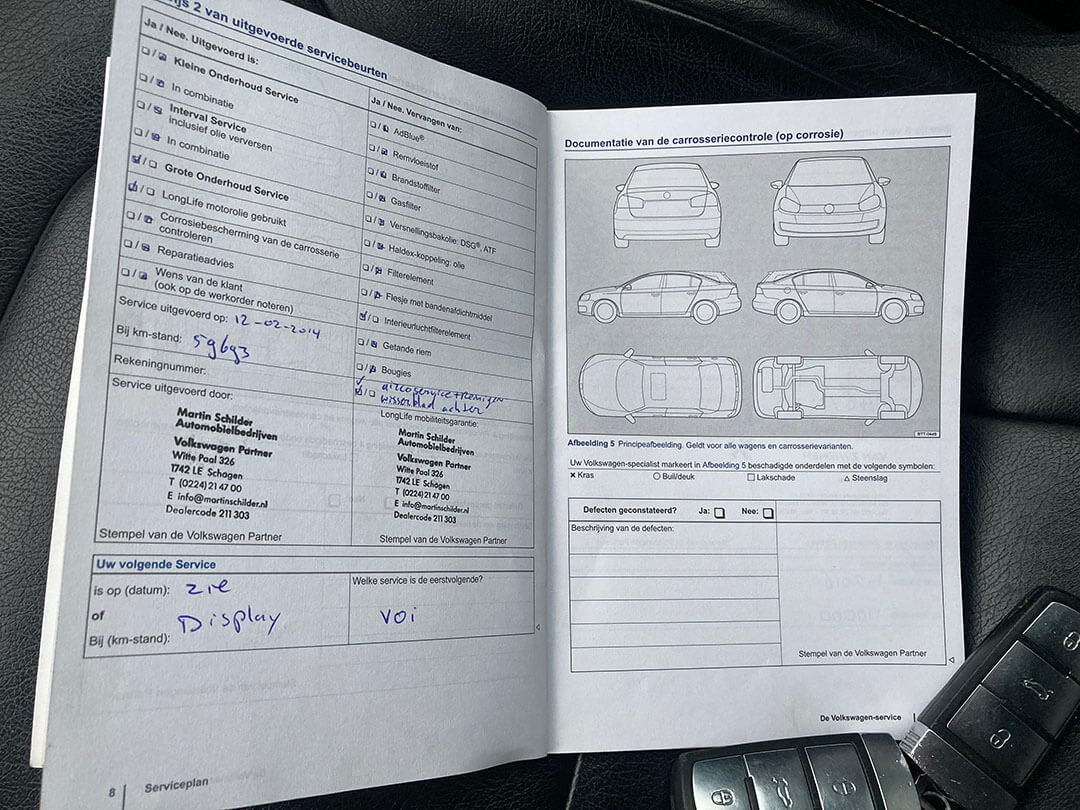 ijs 2 van uitgevoerde servicebeurten
Ja / Nee. Uitgevoerd is:
❑ / ☑ Kleine Onderhoud Service
❑ / ☑ In combinatie
❑ / ☑ Interval Service
inclusief olie verversen
❑ / ☑ In combinatie
☑ / ❑ Grote Onderhoud Service
☑ / ❑ LongLife motorolie gebruikt
❑ / ☑ Corrosiebescherming van de carrosserie
controleren
❑ / ☑ Reparatieadvies
❑ / ☑ Wens van de klant
(ook op de werkorder noteren)
Service uitgevoerd op: 12-02-2014
Bij km-stand: 59693
Rekeningnummer:
Service uitgevoerd door:
Martin Schilder
Automobielbedrijven
Volkswagen Partner
Witte Paal 326
1742 LE Schagen
T (0224) 21 47 00
E info@martinschilder.nl
Dealercode 211 303
Stempel van de Volkswagen Partner
Ja / Nee. Vervangen van:
❑ / ☑ AdBlue®
❑ / ☑ Remvloeistof
❑ / ☑ Brandstoffilter
❑ / ☑ Gasfilter
❑ / ☑ Versnellingsbakolie: DSG®, ATF
❑ / ☑ Haldex-koppeling: olie
❑ / ☑ Filterelement
❑ / ☑ Flesje met bandenafdichtmiddel
☑ / ❑ Interieurluchtfilterelement
❑ / ☑ Getande riem
❑ / ☑ Bougies
☑ / ❑ aircoservice + reinigen
wisserblad achter
LongLife mobiliteitsgarantie:
Martin Schilder
Automobielbedrijven
Volkswagen Partner
Witte Paal 326
1742 LE Schagen
T (0224) 21 47 00
E info@martinschilder.nl
Dealercode 211 303
Stempel van de Volkswagen Partner
Uw volgende Service
is op (datum): zie
of Display
Bij (km-stand):
Welke service is de eerstvolgende?
voi
8 Serviceplan
Documentatie van de carrosseriecontrole (op corrosie)
BTT-0449
Afbeelding 5 Principeafbeelding. Geldt voor alle wagens en carrosserievarianten.
Uw Volkswagen-specialist markeert in Afbeelding 5 beschadigde onderdelen met de volgende symbolen:
× Kras ○ Buil/deuk □ Lakschade △ Steenslag
Defecten geconstateerd? Ja: ❑ Nee: ❑
Beschrijving van de defecten:
Stempel van de Volkswagen Partner
De Volkswagen-service